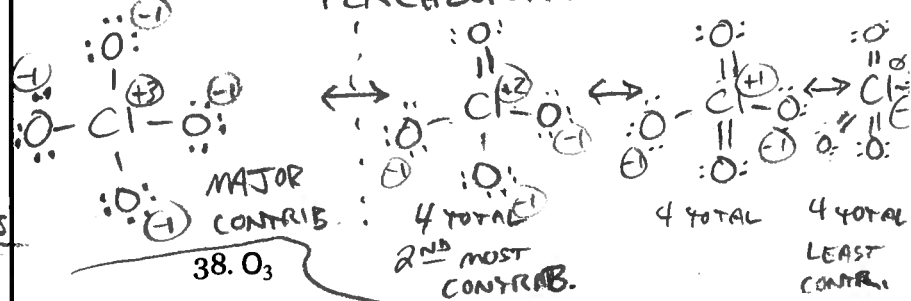 -1
:O:
-1 +3 -1
O - Cl - O:
:O:
-1
MAJOR
CONTRIB.
:O:
+2
O - Cl - O:
-1 -1
:O:
-1
4 TOTAL
2ND MOST
CONTRIB.
:O:
+1
O - Cl - O:
-1 -1
:O:
4 TOTAL
:O:
Ø
Cl
O
:O:
4 TOTAL
LEAST
CONTR.
S
38. O₃